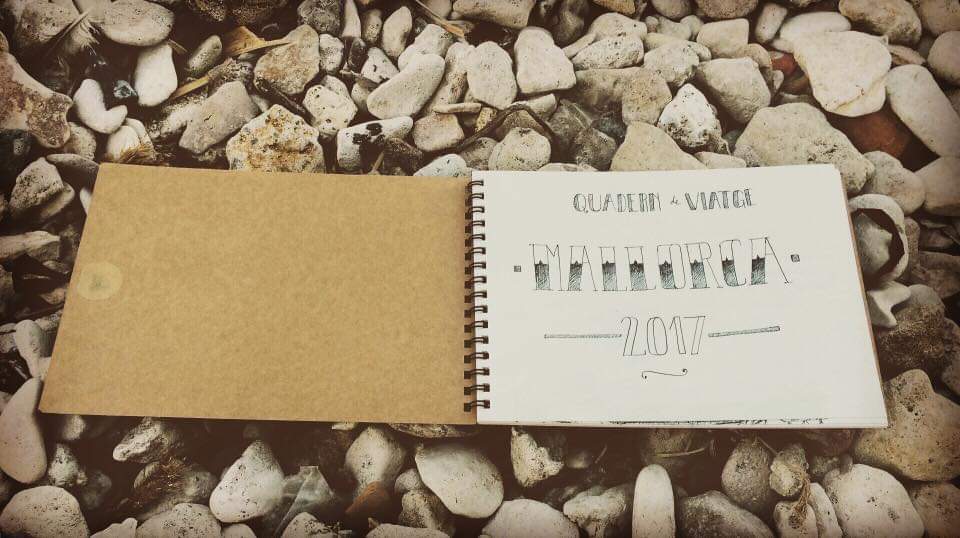 QUADERN de VIATGE
MALLORCA
2017